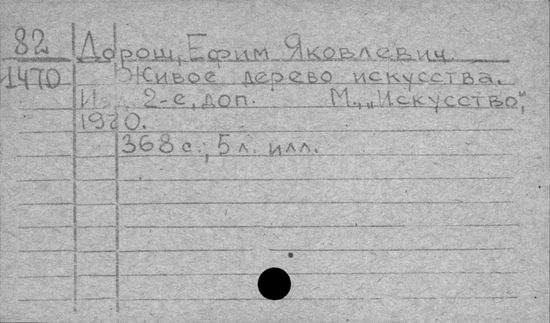 82 Дорош, Ефим Яковлевич
1470 Живое дерево искусства.
Изд. 2-е, доп. М., „Искусство",
1970.
368 с.; 5 л. илл.